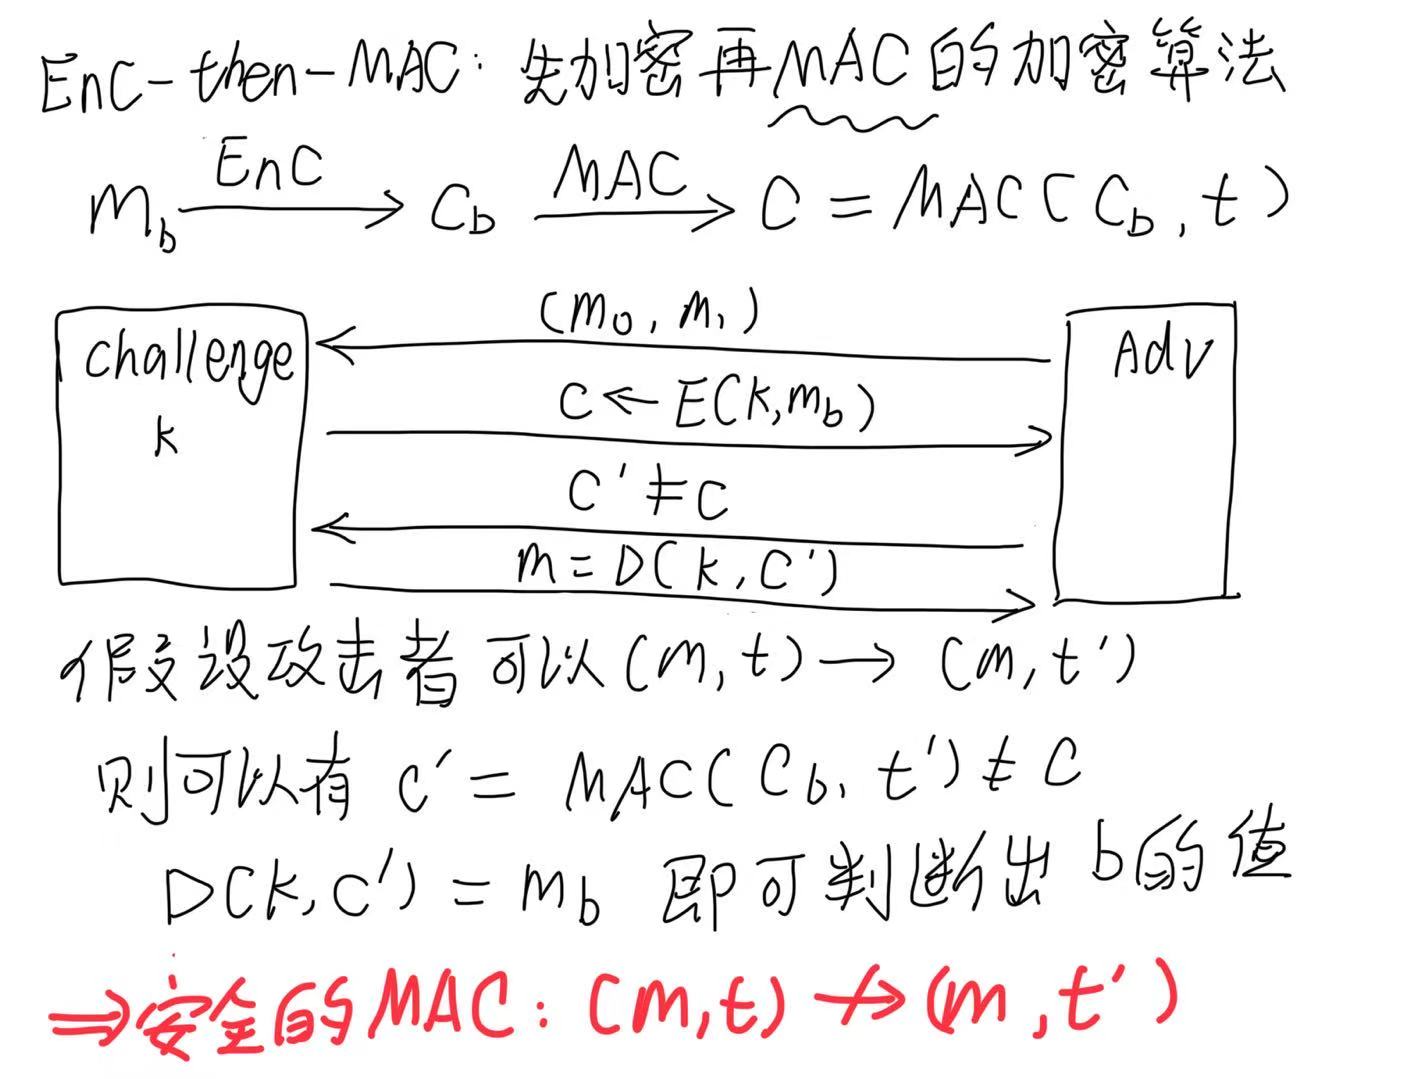 EnC-then-MAC: 先加密再MAC的加密算法
m_b —EnC→ C_b —MAC→ C = MAC(C_b, t)
(m₀, m₁)
challenge
Adv
C ← E(k, m_b)
k
C' ≠ C
m = D(k, C')
假设攻击者可以(m, t) → (m, t')
则可以有 C' = MAC(C_b, t') ≠ C
D(k, C') = m_b 即可判断出b的值
⇒安全的MAC: (m,t) ↛ (m, t')